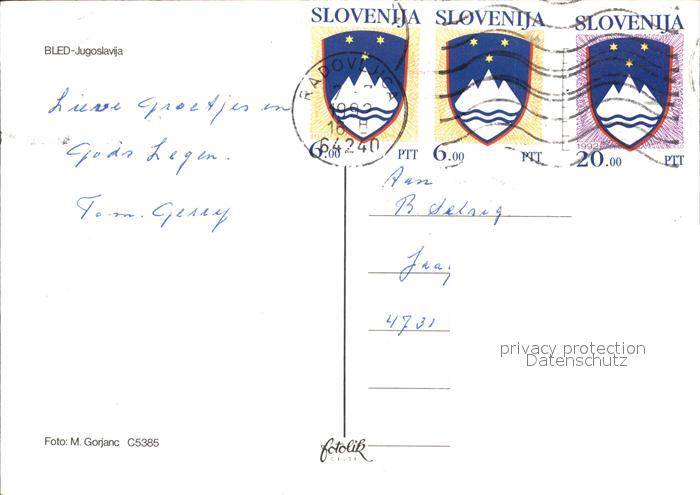 SLOVENIJA SLOVENIJA SLOVENIJA
BLED-Jugoslavija
RADOVLJICA
1992
64240
1992
6.00 PTT 6.00 PTT 20.00 PTT
Lieve Groetjes en
Gods Zegen.
Tom. Gerry
Aan
B
Jaa
4731
privacy protection
Datenschutz
Foto: M. Gorjanc C5385
fotolik
CELJE